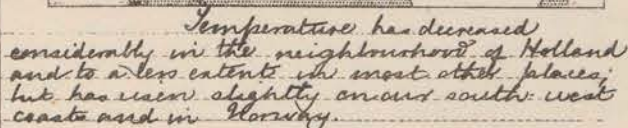 Temperature has decreased
considerably in the neighbourhood of Holland
and to a less extent in most other places,
but has risen slightly on our south-west
coasts and in Norway.